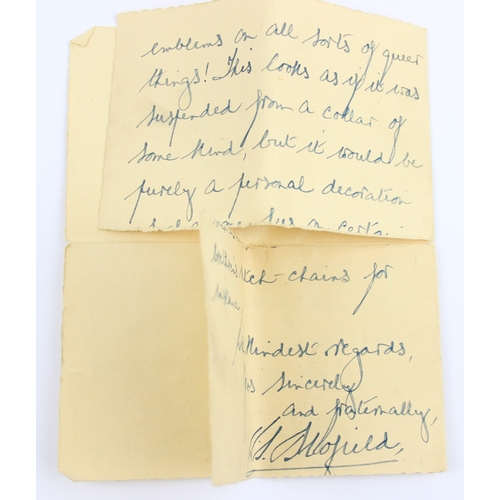 emblems on all sorts of queer
things! This looks as if it was
suspended from a collar of
some kind, but it would be
purely a personal decoration
-chains for
kindest regards,
sincerely
and fraternally,